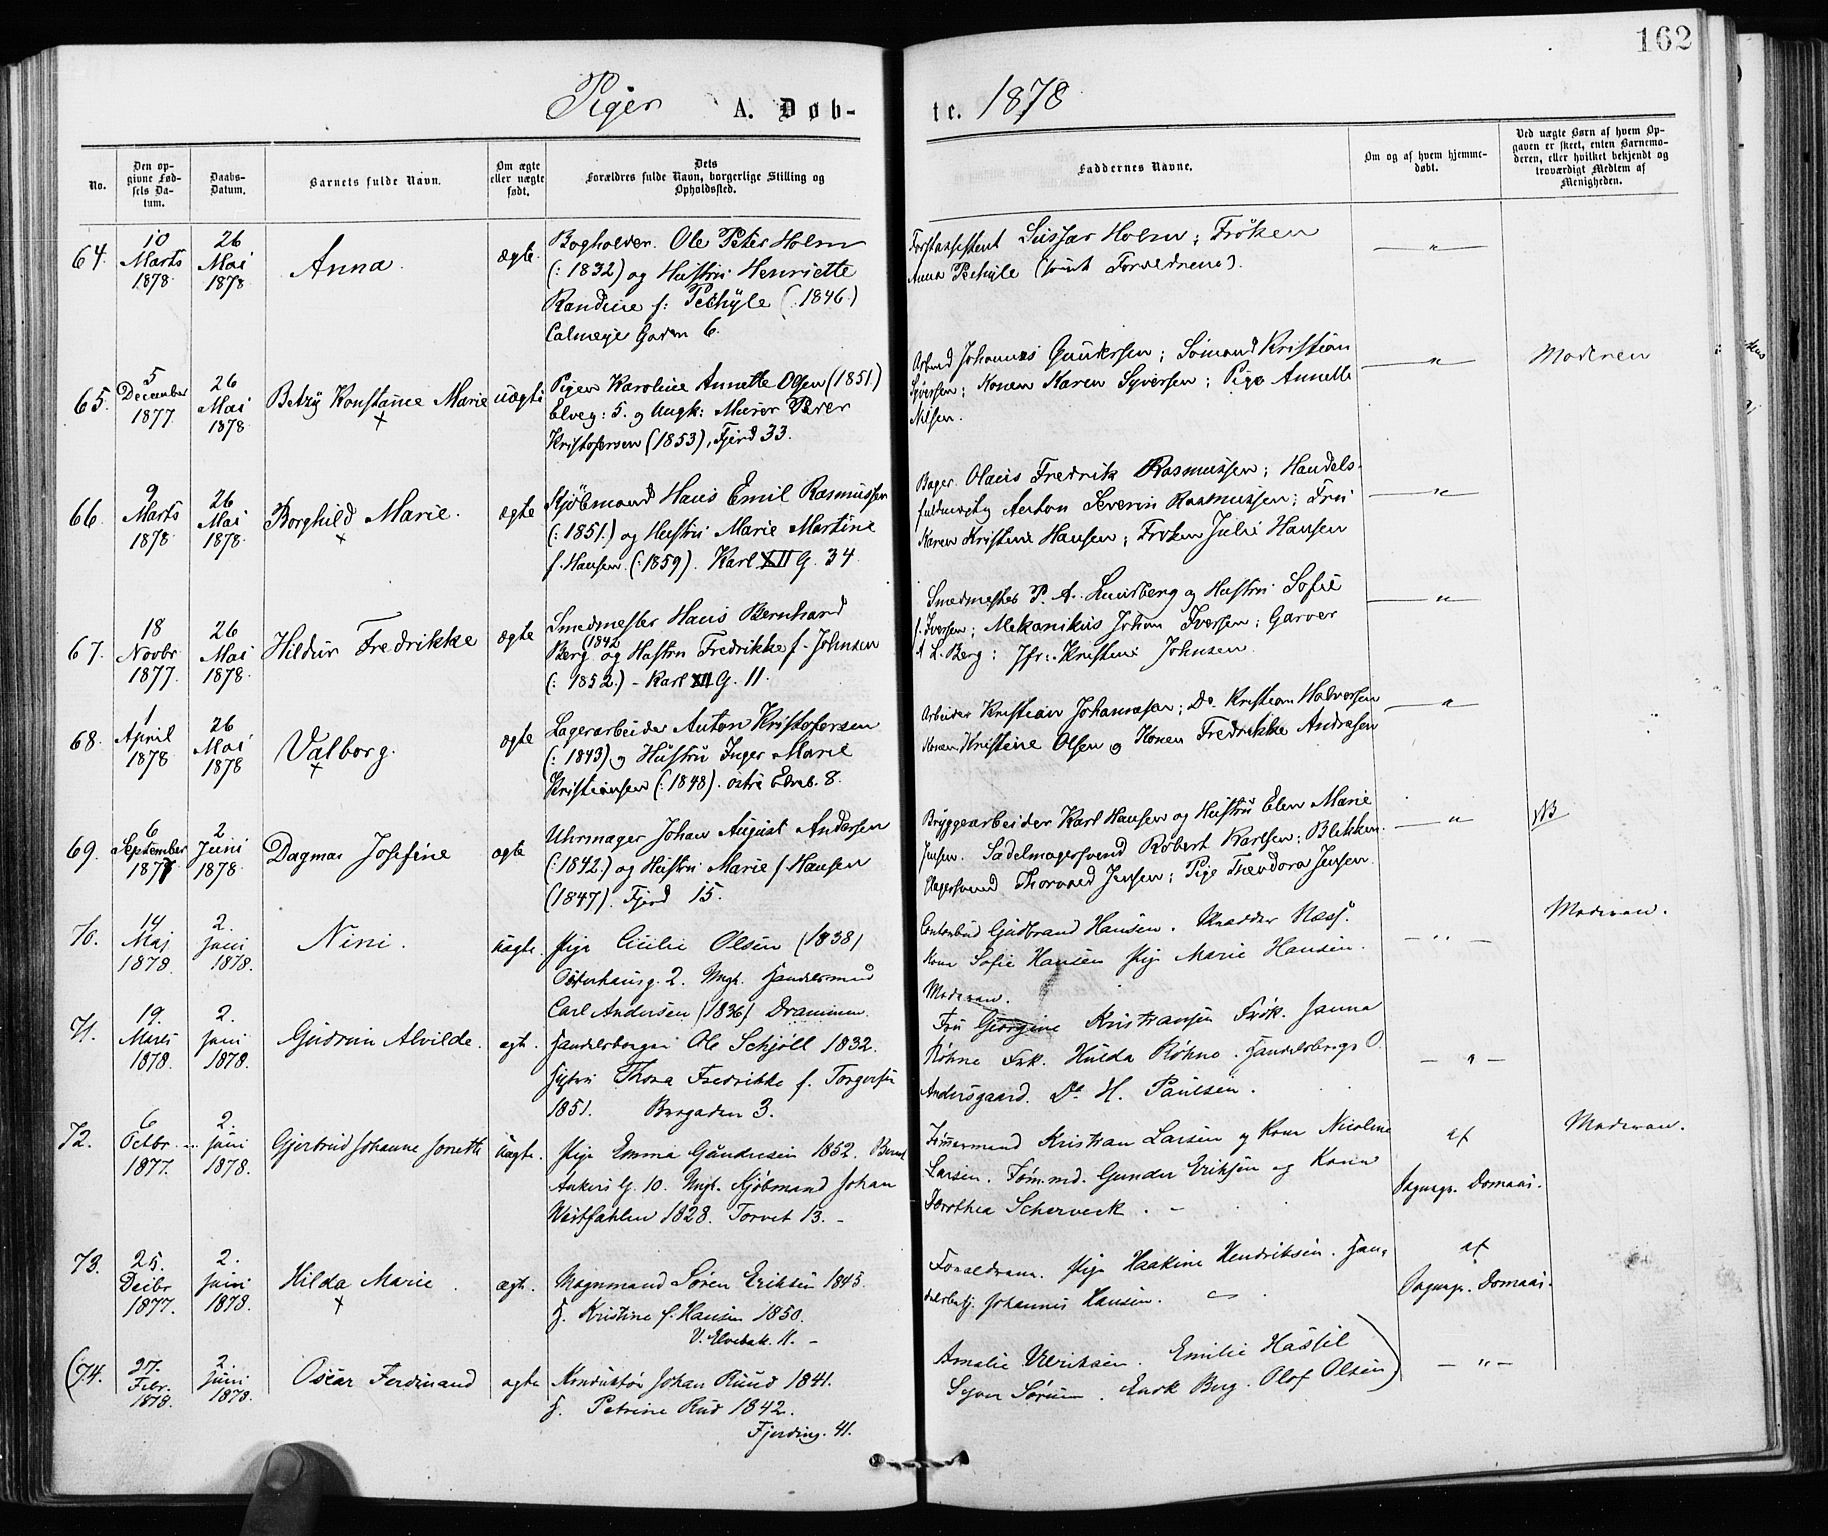 162
Piger A. Døb-
te. 1878
No.
Den op-
givne Fød-
sels Da-
tum.
Daabs-
Datum.
Barnets fulde Navn.
Om ægte
eller uægte
født.
Dets
Forældres fulde Navn, borgerlige Stilling og
Opholdssted.
Faddernes Navne.
Om og af hvem hjemme-
døbt.
Ved uægte Børn af hvem Op-
gaven er skeet, enten Barnemo-
deren, eller hvilket bekjendt og
troværdigt Medlem af
Menigheden.
64.
10
Marts
1878
26
Mai
1878
Anna.
ægte.
Bogholder. Ole Peter Holm
(: 1832) og Hustru Henriette
Randine f: Pechüle (: 1846)
Calmeyer Gaden 6.
Forstassistent Holm; Frøken
Anna Pechüle (samt Forældrene).
"
65.
5
December
1877
26
Mai
1878
Betzy Konstance Marie
uægte
Pigen Karoline Annette Olsen (1851.)
Elveg: 5. og Ungk: Murer Peter
Kristofersen (1853), Fjerd 33.
Arbmd Johannes Gundersen; Sømand Kristian
Syversen; Konen Karen Syversen; Pige Annette
Nilsen.
"
Moderen
66.
9
Marts
1878
26
Mai
1878.
Borghild Marie.
ægte
Kjøbmand Hans Emil Rasmussen
(: 1851.) og Hustru Marie Martine
f. Hansen. (: 1859). Karl XII G. 34.
Bager. Olaus Fredrik Rasmussen; Handels-
fuldmægtig Anton Severin Rasmussen; Fru
Karen Kristine Hansen; Frøken Julie Hansen
"
67.
18
Novbr
1877.
26
Mai
1878.
Hildur Fredrikke
ægte
Smedmester Hans Bernhard
Berg (1842 og Hustru Fredrikke f. Johnsen
(: 1852.) - Karl XII G. 11.
Smedmester P. A. Lundberg og Hustru Sofie
f. Iversen; Mekanikus Johan Iversen; Garver
A L. Berg; Jfr: Kristine Johnsen.
"
68.
1
April
1878
26
Mai
1878
Valborg.
ægte
Lagerarbeider Anton Kristofersen
(: 1843) og Hustru Inger Marie
Kristiansen (: 1848). østre Elveb. 8.
Arbeider Kristian Johannesen; Do Kristian Halversen
Konen Kristine Olsen og Konen Fredrikke Andresen
"
69.
6
September
1877
2
Juni
1878.
Dagmar Josefine
ægte
Uhrmager Johan August Andersen
(: 1842.) og Hustru Marie f Hansen
(1847). Fjerd 15.
Bryggearbeider Karl Hansen og Hustru Elen Marie
Jensen. Sadelmagersvend Robert Karlsen; Blikken-
slagersvend Thorvald Jensen; Pige Theodora Jensen.
"
NB
70.
14
Maj
1878.
2.
Juni
1878.
Nini.
uægte.
Pige Cecilie Olsen (1838)
Osterhausg. 2. Ungk. Handelsmnd
Carl Andersen (1836) Drammen.
Contorbud Gudbrand Hansen. Næss.
Kone Sofie Hansen Pige Marie Hansen.
Moderen.
"
Moderen.
71.
19.
Marts
1878.
2.
Juni
1878.
Gudrun Alvilde.
ægt.
Handelsborger Ole Schjøll 1832.
Hustru Thora Fredrikke f. Torgersen
1851. Brogaden 3.
Fru Georgine Kristiansen Frøk. Janna
Røhne Frk. Hulda Røhne. Handelsborger O.
Andersgaard. Do H. Paulsen.
"
72.
6
Octbr
1877.
2.
Juni
1878.
Gjertrud Johanne Jonette
uægte.
Pige Emma Gundersen 1852. Bernt
Ankers G. 10. Ungk. Kjøbmand Johan
Westfahlen 1828. Torvet 13. -
Tømermand Kristian Larsen og Kone Nicoline
Larsen. Tøm.md. Gunder Eriksen og Kone
Dorthea Scherveck.
af
Domaas.
Moderen.
73.
25.
Decbr
1877.
2.
Juni
1878.
Hilda Marie
ægt.
Vognmand Søren Eriksen 1845.
H. Kristine f. Hansen 1850.
V. Elvebak. 11. -
Forældrene. Pige Haakine Hendriksen. Han-
Johannes Hansen.
af
Domaas.
(74.
27.
Febr.
1878.
2.
Juni
1878.
Oscar Ferdinand
ægte
Konduktør Johan Ruud 1841.
H. Petrine Rud 1842.
Fjerding. 41.
Amalie Ulriksen. Emilie Hassel
Syver Sørum. Berg. Olof Olsen)
"